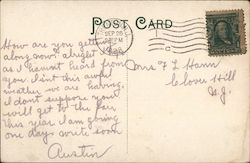 POST CARD
How are you getting
along now? alright
as I havent heard from
you. Isnt this awful
weather we are having,
I dont suppose you
will get to the fair
this year. I am going
one day. write soon
Austin
SEP 20
Mrs F L Hann
Clover Hill
N.J.